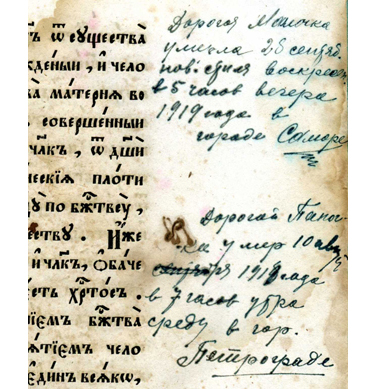 ть ѿ существа̀
жде́ный, и҆ чело
ва̀ ма́терня во
совершє́нный
чл҃къ, ѿ дш҃и
ческїѧ пло́ти
дꙋ̀ по бж҃твꙋ̀,
еству̀. И҆́же
и҆ чл҃къ, ѻ҆ба́че
есть хрⷭ҇то́съ.
нїемъ бж҃тва̀
ѧ́тїемъ чело
є҆ди́нъ всѧ́кѡ,
Дорогая Мамочка
умерла 28 сентяб.
нов. стиля воскресен
в 5 часов вечера
1919 года в
городе Самаре
Дорогой Папоч
ка умер 10 августа
1918 года
в 7 часов утра
среду в гор.
Петрограде